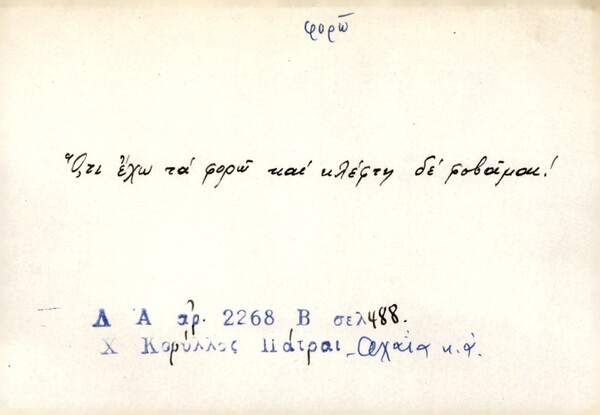 φορῶ
Ὅτι ἔχω τά φορῶ καί κλέφτη δέ φοβᾶμαι!
Λ Α αρ. 2268 Β σελ 488.
Χ Κορύλλος Πάτραι - Ἀχαΐα κ.ἀ.